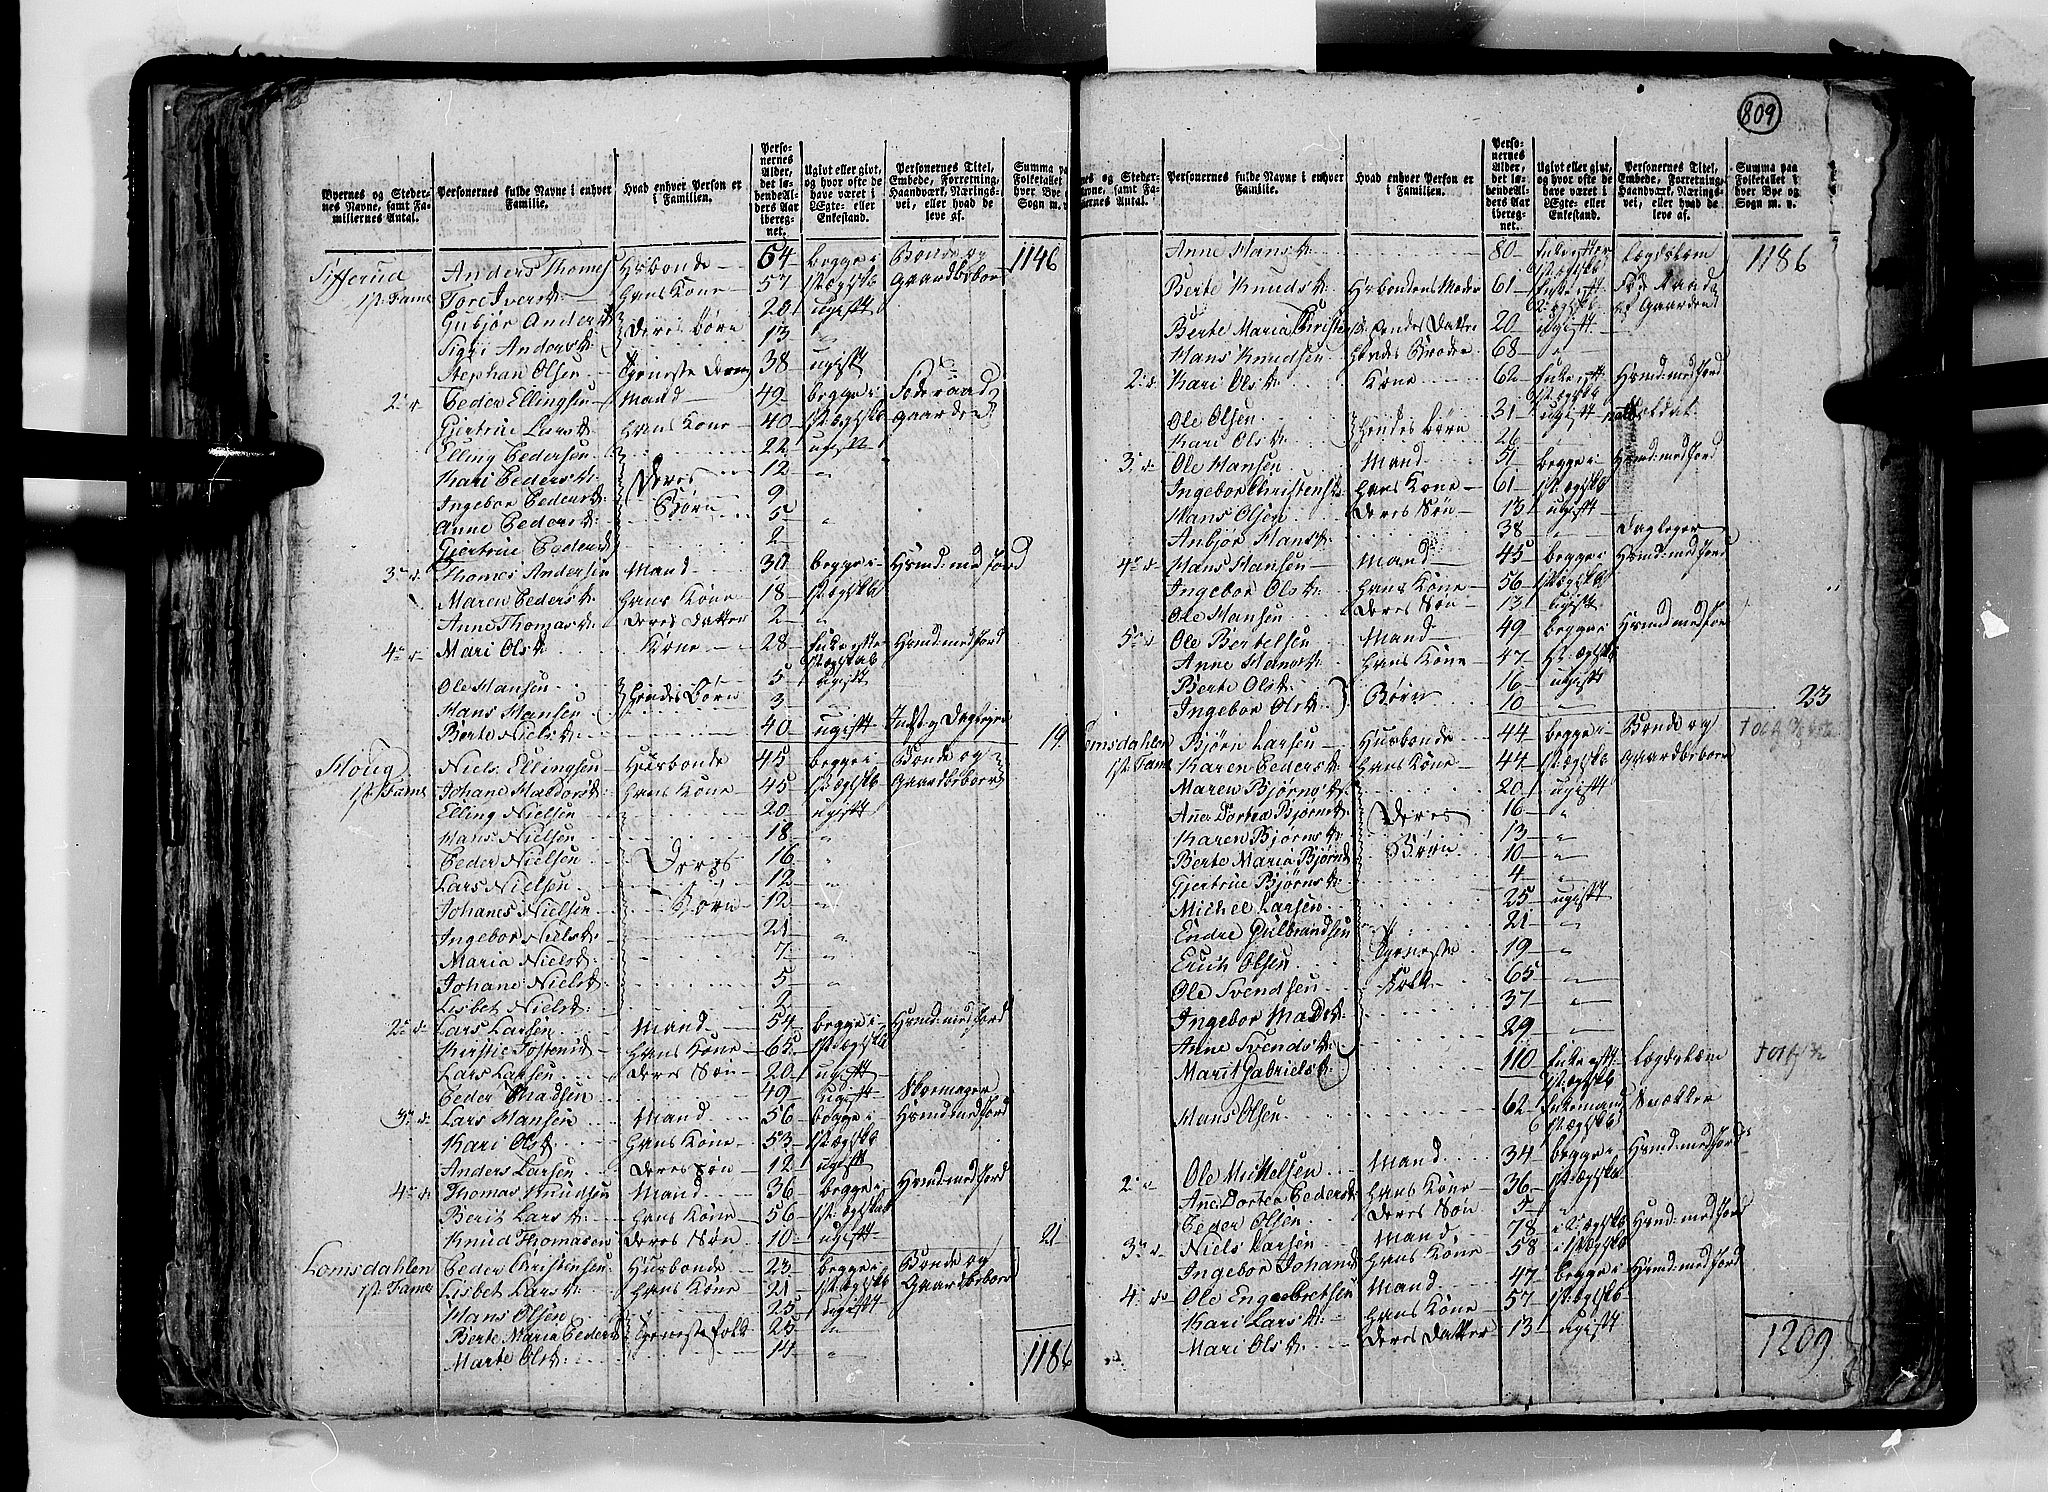 809
Byernes og Steder-
nes Navne, samt Fa-
miliernes Antal.
Personernes fulde Navne i enhver
Familie.
Hvad enhver Person er
i Familien.
Perso-
nernes
Alder,
det lø-
bende Al-
ders Aar
ibereg-
net.
Ugivt eller givt,
og hvor ofte de
have været i
Ægte- eller
Enkestand.
Personernes Titel,
Embede, Forretning,
Haandværk, Nærings-
vei, eller hvad de
leve af.
Summa paa
Folketallet
hver Bye og
Sogn m. v.
Anders Thomes Husbonde 64 begge i Bonde og 1146
1st. Fame Tore Iversd. hans Kone 57 1st. ægtsk. Gaardbeboer
Gubjør Andersd. Deres Børn 20 ugift
Sigri Andersd. 13 "
Stephan Olsen Tjeneste Dreng 38 ugift
2. Peder Ellingsen Mand 49 begge i Føderaad
Gjertrue Larsd. hans Kone 40 1st. ægtsk. gaarden
Elling Pedersen 22 ugift
Kari Pedersd. Deres 12 "
Ingebor Pedersd. Børn 9
Anne Pedersd. 5 "
Gjertrue Pedersd. 2
3. Thomes Andersen Mand 30 begge i Husmd: med Jord
Maren Pedersd. hans Kone 18 1st. ægtsk.
Anne Thomasd. Deres Datter 2 "
4. Mari Olsd. Kone 28 Enke efter Husmd: med Jord
1st. ægtskab
Ole Hansen Hendes Børn 5 ugift
Hans Hansen 3
Berte Nielsd. 40 ugift Inds. og Dagleyer 19
Niels Ellingsen Husbonde 45 begge i Bonde og
1st. Fame Johane Haldorsd. hans Kone 45 1st. ægtsk. Gaardbeboer
Elling Nielsen 20 ugift
Hans Nielsen 18 "
Peder Nielsen Deres 16 "
Lars Nielsen 12 "
Johanes Nielsen Børn 12 "
Ingebor Nielsd. 21 "
Maria Nielsd. 7 "
Johane Nielsd. 5 "
Lisbet Nielsd. 2
2. Lars Larsen Mand 54 begge i Husmd: med Jord
Kirstie Tostensd. hans Kone 65 1st. ægtsk.
Lars Larsen Deres Søn 20 ugift
Peder Madsen 49 ugift Skomager
3. Lars Hansen Mand 56 begge i Husmd: med Jord
Kari Olsd. hans Kone 53 1st. ægtsk.
Anders Larsen Deres Søn 12 ugift
4. Thomas Knudsen Mand 36 begge i Husmd: med Jord
Berit Larsd. hans Kone 56 1st. ægtskab
Knud Thomasen Deres Søn 10 ugift 21
Lomsdahlen Peder Christensen Husbonde 23 begge i Bonde og
1st. Fame Lisbet Larsd. hans Kone 21 1st. ægtsk. Gaardbeboer
Hans Olsen 25 ugift
Berte Maria Pedersd. Tjeneste folk 25 "
Marte Olsd. 14 "
1186
nes og Steder-
avne, samt Fa-
ernes Antal.
Personernes fulde Navne i enhver
Familie.
Hvad enhver Person er
i Familien.
Perso-
nernes
Alder,
det lø-
bende Al-
ders Aar
ibereg-
net.
Ugivt eller givt,
og hvor ofte de
have været i
Ægte- eller
Enkestand.
Personernes Titel,
Embede, Forretning,
Haandværk, Nærings-
vei, eller hvad de
leve af.
Summa paa
Folketallet i
hver Bye og
Sogn m. v.
Anne Hansd. 80 Enke efter Lægdslem 1186
1st. ægtsk.
Berte Knudsd. Husbondens Moder 61 Enke eft.
2. ægtsk. af Gaarden
Berte Maria Christensd. Hendes Datter 20 ugift
Hans Knudsen Hendes Broder 68 "
2. Kari Olsd. Kone 62 Enke eft. Husmd: med Jord
1st. ægtsk.
Ole Olsen Hendes Børn 31 ugift Soldat
Kari Olsd. 26
3. Ole Hansen Mand 51 begge i Husmd: med Jord
Ingebor Christensd. hans Kone 61 1st. ægtsk.
Hans Olsen Deres Søn 13 ugift
Anbjør Hansd. 38 " Dagleyer
4. Hans Hansen Mand 45 begge i Husmd: med Jord
Ingebor Olsd. hans Kone 56 1st. ægtsk.
Ole Hansen Deres Søn 13 ugift
5. Ole Bertelsen Mand 49 begge i Husmd: med Jor
Anne Hansd. hans Kone 47 1st. ægtsk.
Berte Olsd. Børn 16 ugift
Ingebor Olsd. 10 " 23
omsdahlen Bjørn Larsen Husbonde 44 begge i Bonde og
1st. Fame Karen Pedersd. hans Kone 44 1st. ægtsk. Gaardbeboer
Maren Bjørnsd. 20 ugift
Anne Dortea Bjørnsd. Deres 16 "
Karen Bjørnsd. Børn 13 "
Berte Maria Bjørnsd. 10 "
Gjertrue Bjørnsd. 4 "
Michel Larsen 25 ugift
Endre Gulbrandsen 21 "
Erich Olsen Tjeneste 19 "
Ole Svendsen Folk 65 "
Ingebor Madsd. 37 "
Anne Svendsd. 29 "
Marit Gabrielsd. 110 Enke eft. Lægdslem
1st. ægtsk.
Hans Olsen 62 Enkemand Snekker
1st. ægtsk.
2. Ole Mikkelsen Mand 34 begge i Husmd: med Jord
Anne Dortea Pedersd. hans Kone 36 1st. ægtsk.
Peder Olsen Deres Søn 5 "
3. Niels Larsen Mand 78 i 2. ægtsk. Husmd: med Jord
Ingebor Johansd. hans Kone 58 i 1st. ægtsk.
4. Ole Engebretsen Mand 47 begge i Husmd: med Jord
Kari Larsd. hans Kone 57 1st. ægtsk.
Mari Olsd. Deres Datter 13 ugift
1209